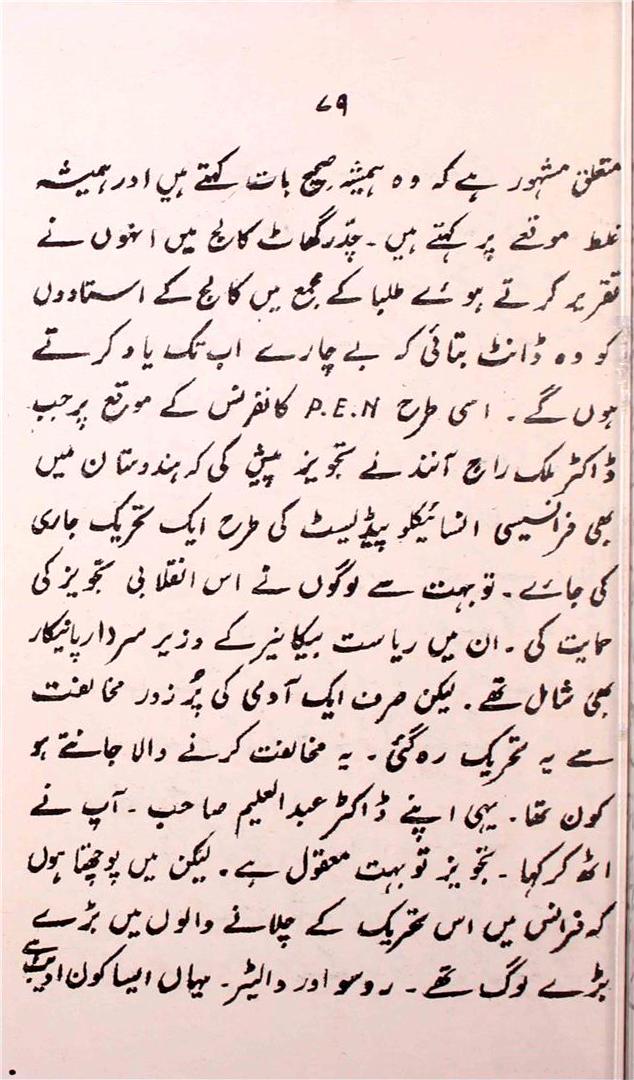 ۷۹
متعلق مشہور ہے کہ وہ ہمیشہ صحیح بات کہتے ہیں اور ہمیشہ
غلط موقعے پر کہتے ہیں۔ چدّرگھاٹ کالج میں انہوں نے
تقریر کرتے ہوئے طلبا کے مجمع میں کالج کے استادوں
کو وہ ڈانٹ بتائی کہ بے چارے اب تک یاد کرتے
ہوں گے۔ اسی طرح P.E.N کانفرنس کے موقع پر جب
ڈاکٹر ملک راج آنند نے تجویز پیش کی کہ ہندوستان میں
بھی فرانسیسی انسائیکلو پیڈیسٹ کی طرح ایک تحریک جاری
کی جائے۔ تو بہت سے لوگوں نے اس انقلابی تجویز کی
حمایت کی۔ ان میں ریاست بیکانیر کے وزیر سردار پانیکار
بھی شال تھے۔ لیکن صرف ایک آدمی کی پُر زور مخالفت
سے یہ تحریک رہ گئی۔ یہ مخالفت کرنے والا جانتے ہو
کون تھا۔ یہی اپنے ڈاکٹر عبدالعلیم صاحب۔ آپ نے
اٹھ کر کہا۔ تجویز تو بہت معقول ہے۔ لیکن میں پوچھتا ہوں
کہ فرانس میں اس تحریک کے چلانے والوں میں بڑے
بڑے لوگ تھے۔ روسو اور والیٹر۔ یہاں ایسا کون ادیب ہے